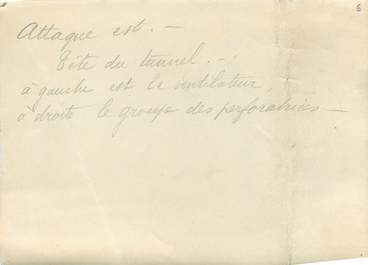 Attaque est. —
Tête du tunnel. —
à gauche est le ventilateur,
à droite le groupe des perforatrices —
6